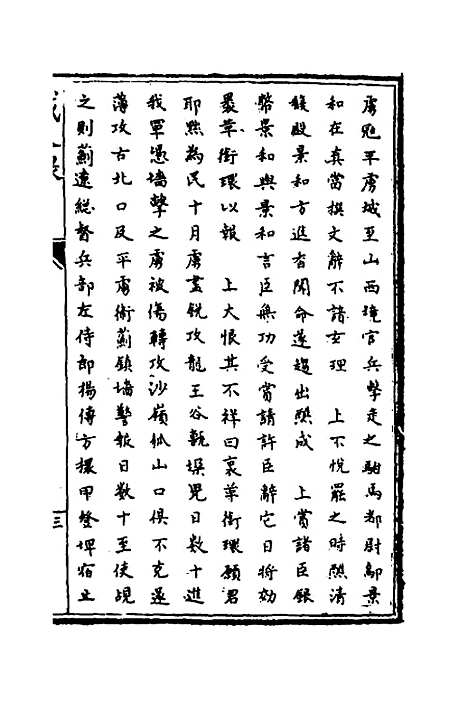 虜寇平虜城至山西境官兵擊走之駙馬都尉鄔景
和在真當撰文辭不諳玄理　上不悅罷之時熊清
餞殿景和方進香聞命遂趨出熊成　上賞諸臣銀
幣景和與景和言臣無功受賞請許臣辭它日將効
裹革銜環以報　上大恨其不祥曰裹革銜環願君
耶黜為民十月虜盡銳攻龍王谷甎垛晃日数十進
我軍憑墻擊之虜被傷轉攻沙嶺狐山口俱不克遂
薄攻古北口及平虜衛薊鎮墻警報日数十至使覘
之則薊遼総督兵部左侍郎楊傳方擐甲登埤宿止
三